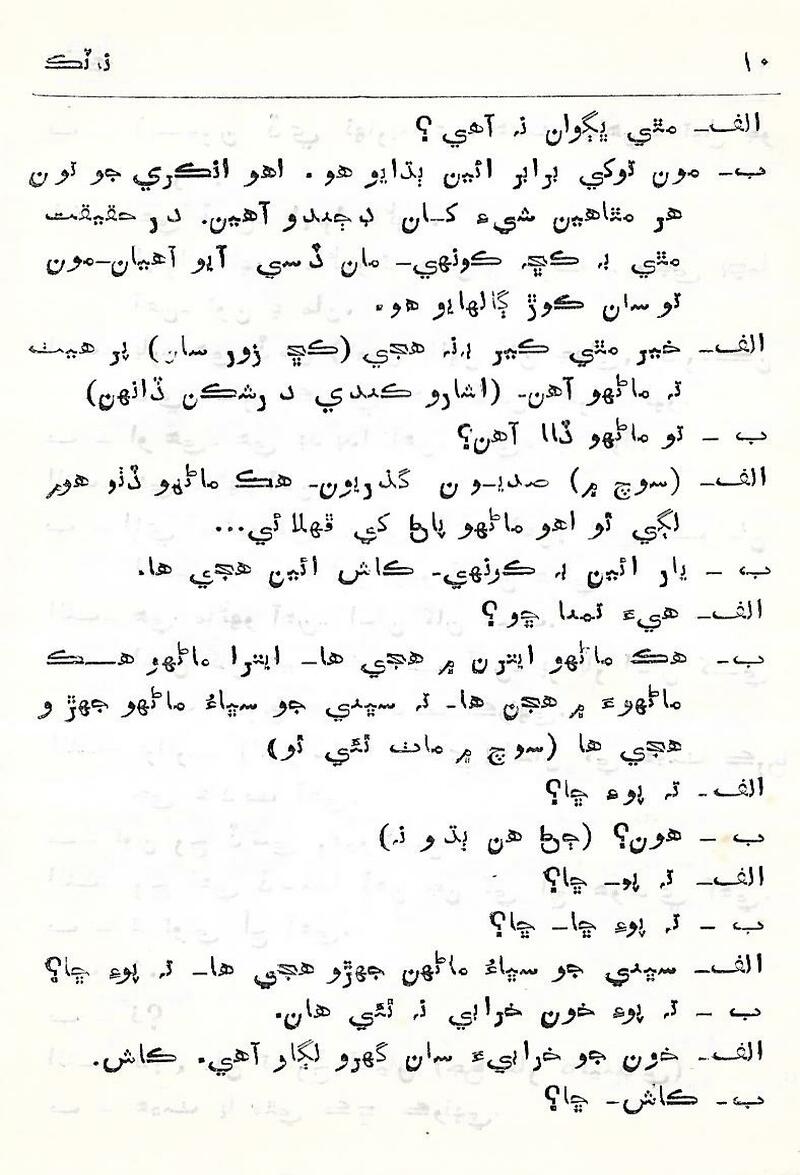 ١٠
ناٽڪ
الف- مٿي ڀڳوان نہ آهي؟
ب- مون توکي برابر ائين ٻڌايو هو. اهو انڪري جو تون
هر مٿاهين شيءِ کان ڊڄندو آهين. در حقيقت
مٿي بہ ڪڇہ ڪونهي- مان ڏسي آيو آهيان-مون
تو سان ڪوڙ ڳالهايو هو.
الف- خير مٿي ڪير بہ نہ هجي (ڪڇ زور سان) پر هيٺ
تہ ماڻهو آهن- (اشارو ڪندي درشڪن ڏانهن)
ب - تو ماڻهو ڏٺا آهن؟
الف- (سوچ ۾) صديون گذريون- هڪ ماڻهو ڏٺو هوم
لڳي ٿو اهو ماڻهو پاڻ کي ڦهلائي...
ب - يار ائين بہ ڪونهي- ڪاش ائين هجي ها.
الف- هيءَ تمنا ڇو؟
ب- هڪ ماڻهو ايترن ۾ هجي ها- ايترا ماڻهو هڪ
ماڻهوءَ ۾ هجن ها- تہ سڀني جو سڀاءُ ماڻهو جهڙو
هجي ها (سوچ ۾ ماٺ ٿئي ٿو)
الف- تہ پوءِ ڇا؟
ب - هون؟ (ڄڻ هن ٻڌو نہ)
الف- تہ پو- ڇا؟
ب - تہ پوءِ ڇا- ڇا؟
الف- سڀني جو سڀاءُ ماڻهن جهڙو هجي ها- تہ پوءِ ڇا؟
ب - تہ پوءِ خون خرابي نہ ٿئي هان.
الف- خون جو خرابيءَ سان گهرو لڳاو آهي. ڪاش.
ب- ڪاش- ڇا؟